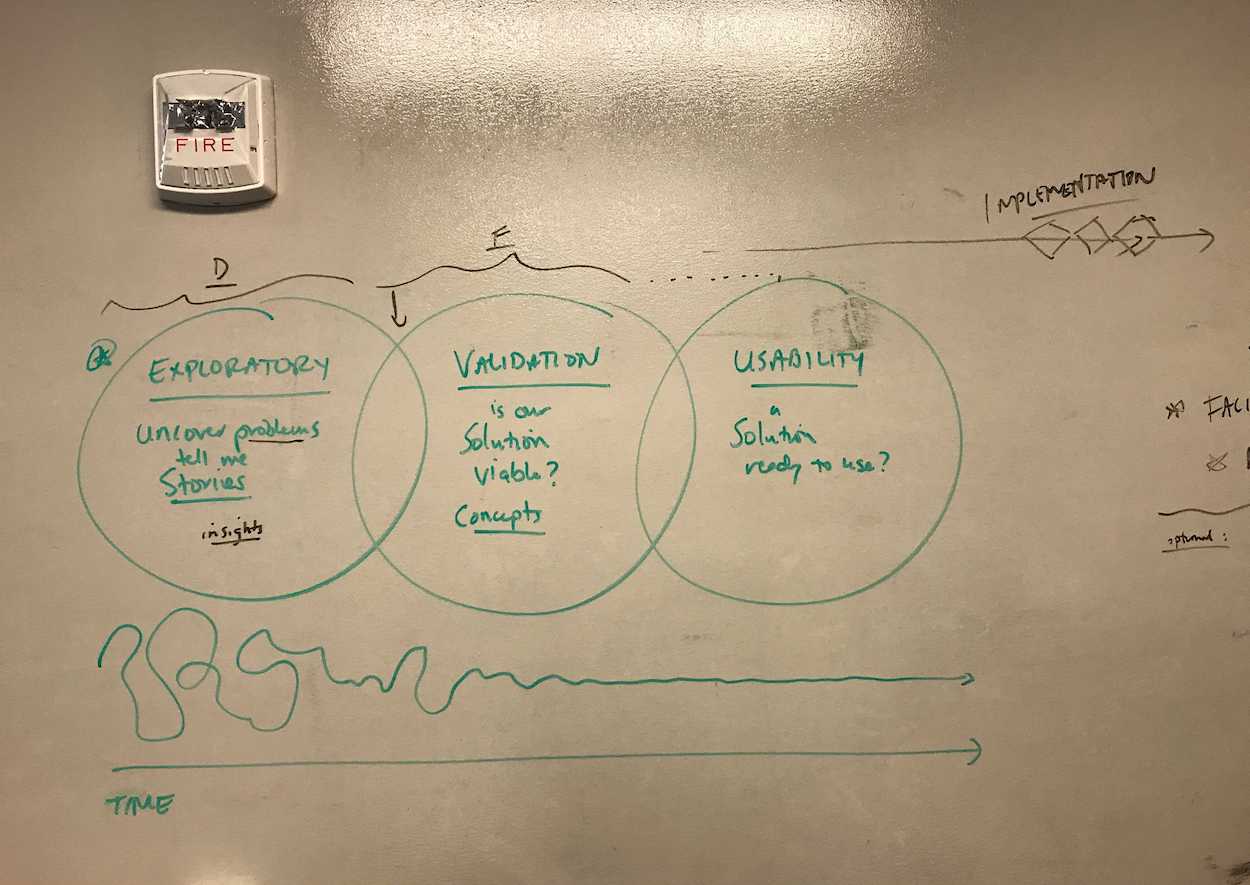 FIRE
IMPLEMENTATION
D
F
EXPLORATORY
Uncover problems
tell me
Stories
insights
VALIDATION
is our
Solution
viable?
Concepts
USABILITY
a
Solution
ready to use?
optional:
TIME